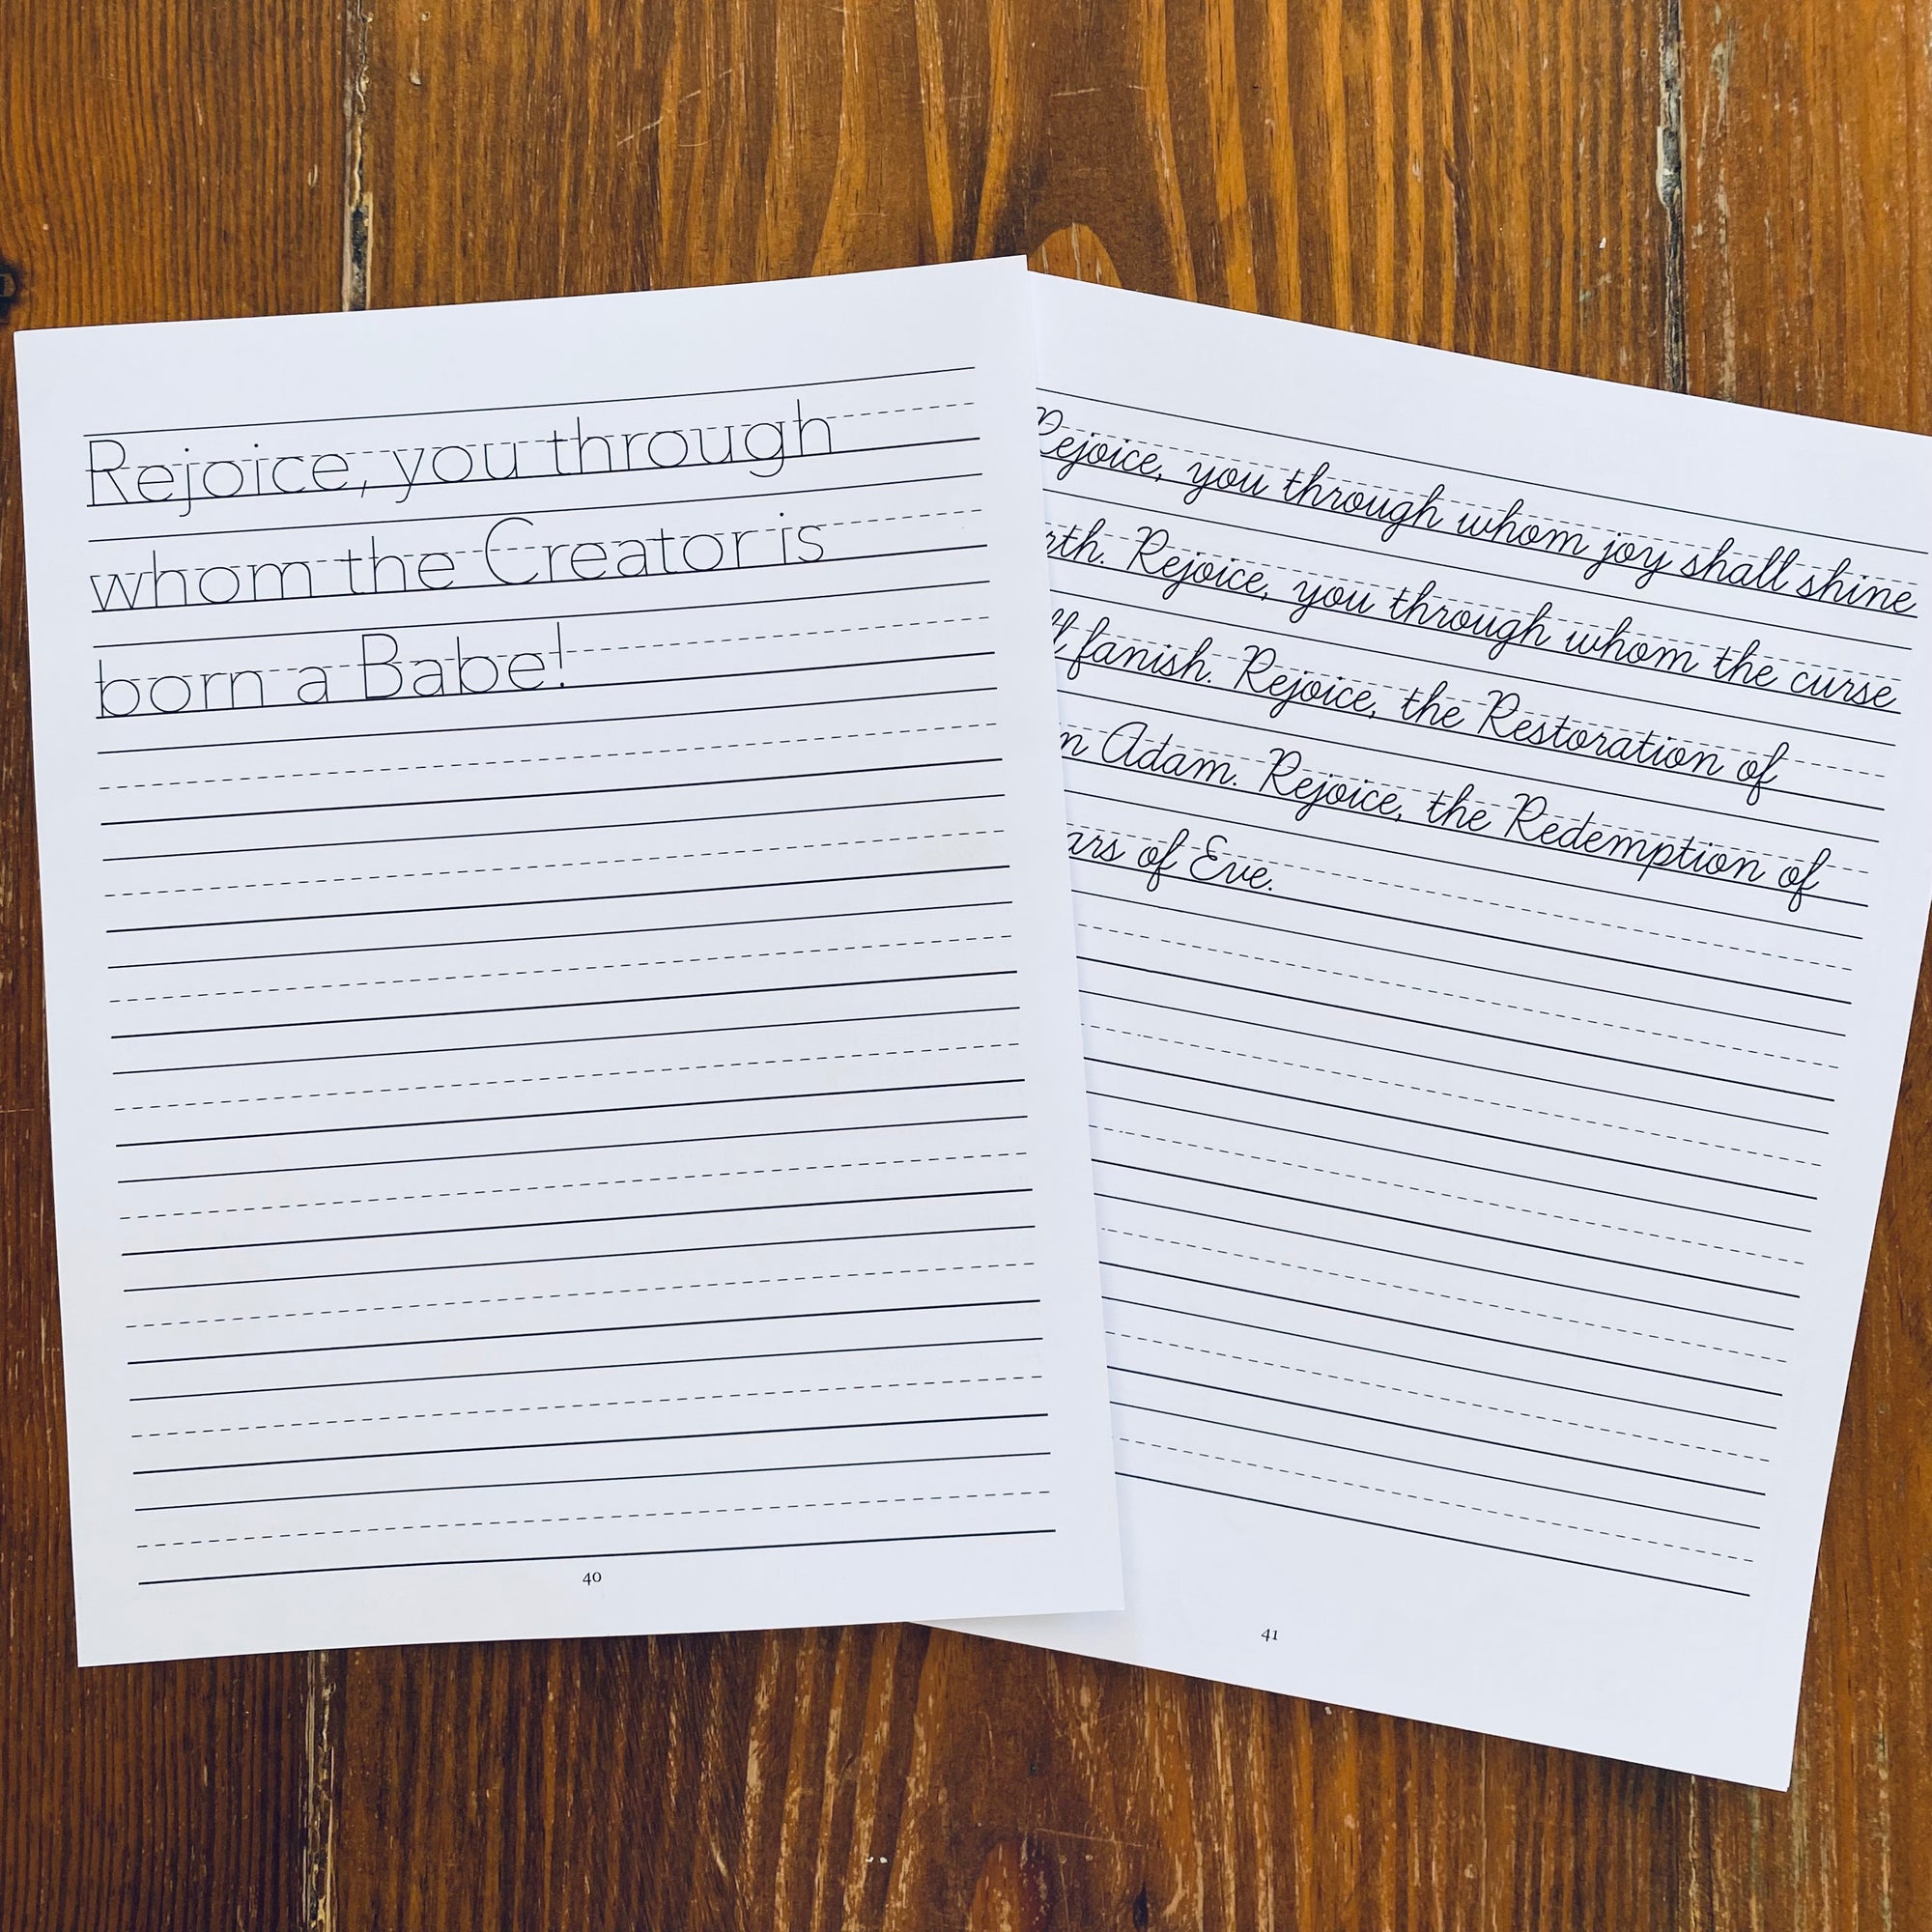 Rejoice, you through
whom the Creator is
born a Babe!
40
Rejoice, you through whom joy shall shine
Rejoice, you through whom the curse
fanish. Rejoice, the Restoration of
Adam. Rejoice, the Redemption of
of Eve.
41